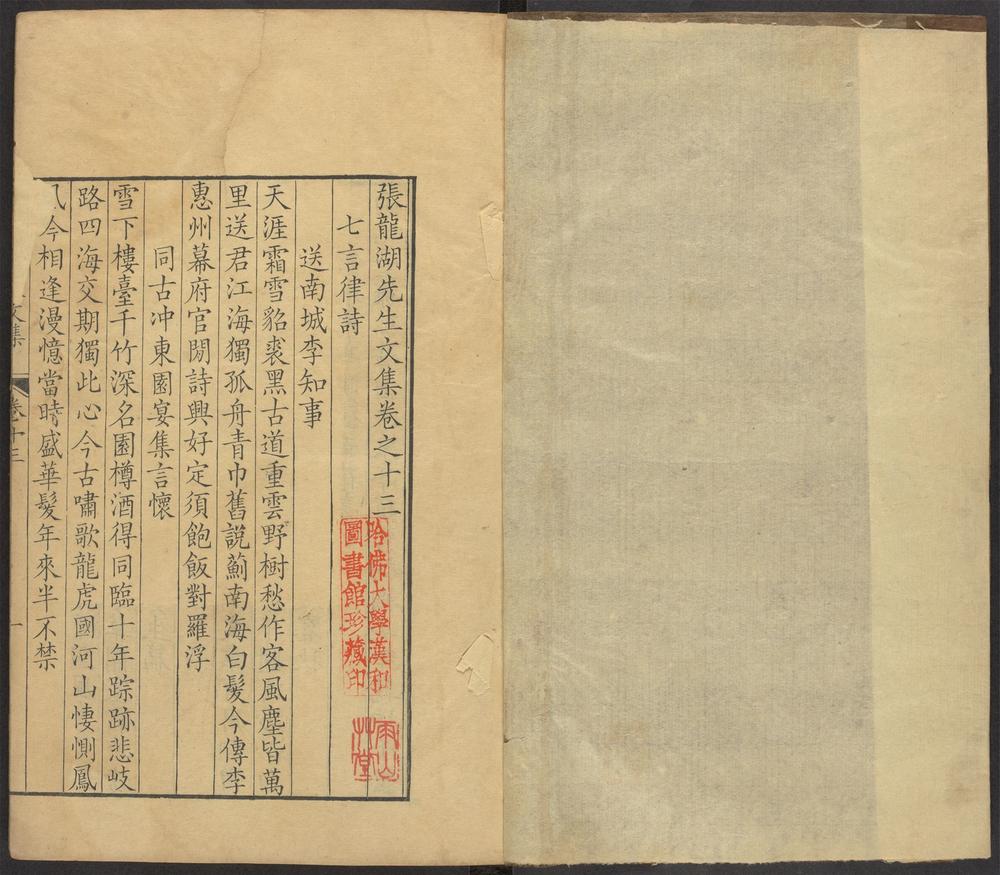 張龍湖先生文集卷之十三
七言律詩
送南城李知事
天涯霜雪貂裘黑古道重雲野樹愁作客風塵皆萬
里送君江海獨孤舟青巾舊說薊南海白髮今傳李
惠州幕府官閒詩興好定須飽飯對羅浮
同古冲東園宴集言懷
雪下樓臺千竹深名園樽酒得同臨十年踪跡悲岐
路四海交期獨此心今古嘯歌龍虎國河山悽惻鳳
今相逢漫憶當時盛華髮年來半不禁
文集
卷十三
一
哈佛大學漢和
圖書館珍藏印
雨山
艸堂